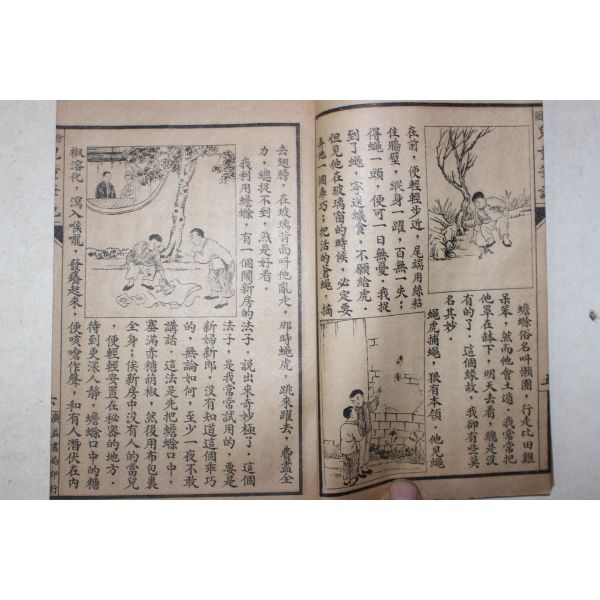 蟾蜍俗名叫懶團，行走比田雞
呆笨，然而他會土遁．我常常把
他罩在缽下，明天去看，總是沒
有的了．這個緣故，我卻有些莫
名其妙．
蠅虎捕蠅．狠有本領．他見蠅
在前，便輕輕步近，尾端用絲粘
住牆壁，縱身一躍，百無一失；
得蠅一頭，便可一日無憂．我捉
到了蠅，寧送蟻食，不願給虎．
但見他在玻璃窗的時候，必定要
弄他一個乖巧；把活的蒼蠅，摘
去翅膀．在玻璃背面叫他亂走，那時蠅虎，跳來躍去，費盡全
力，總捉不到，煞是好看．
我利用蟾蜍，有一個鬧新房的法子，說出來奇妙極了．這個
法子，是我常常試用的，要是
新婦新郎，沒有知道這個乖巧
的，無論如何，至少一夜不敢
講話．這法是先把蟾蜍口中．
塞滿赤糖胡椒，然後用布包裹
全身；俟新房中沒有人的當兒
，便輕輕安置在秘密的地方．
待到更深人靜，蟾蜍口中的糖
椒溶化，瀉入喉嚨，發癢起來，便咳嗆作聲，和有人潛伏在內
廣益書局印行